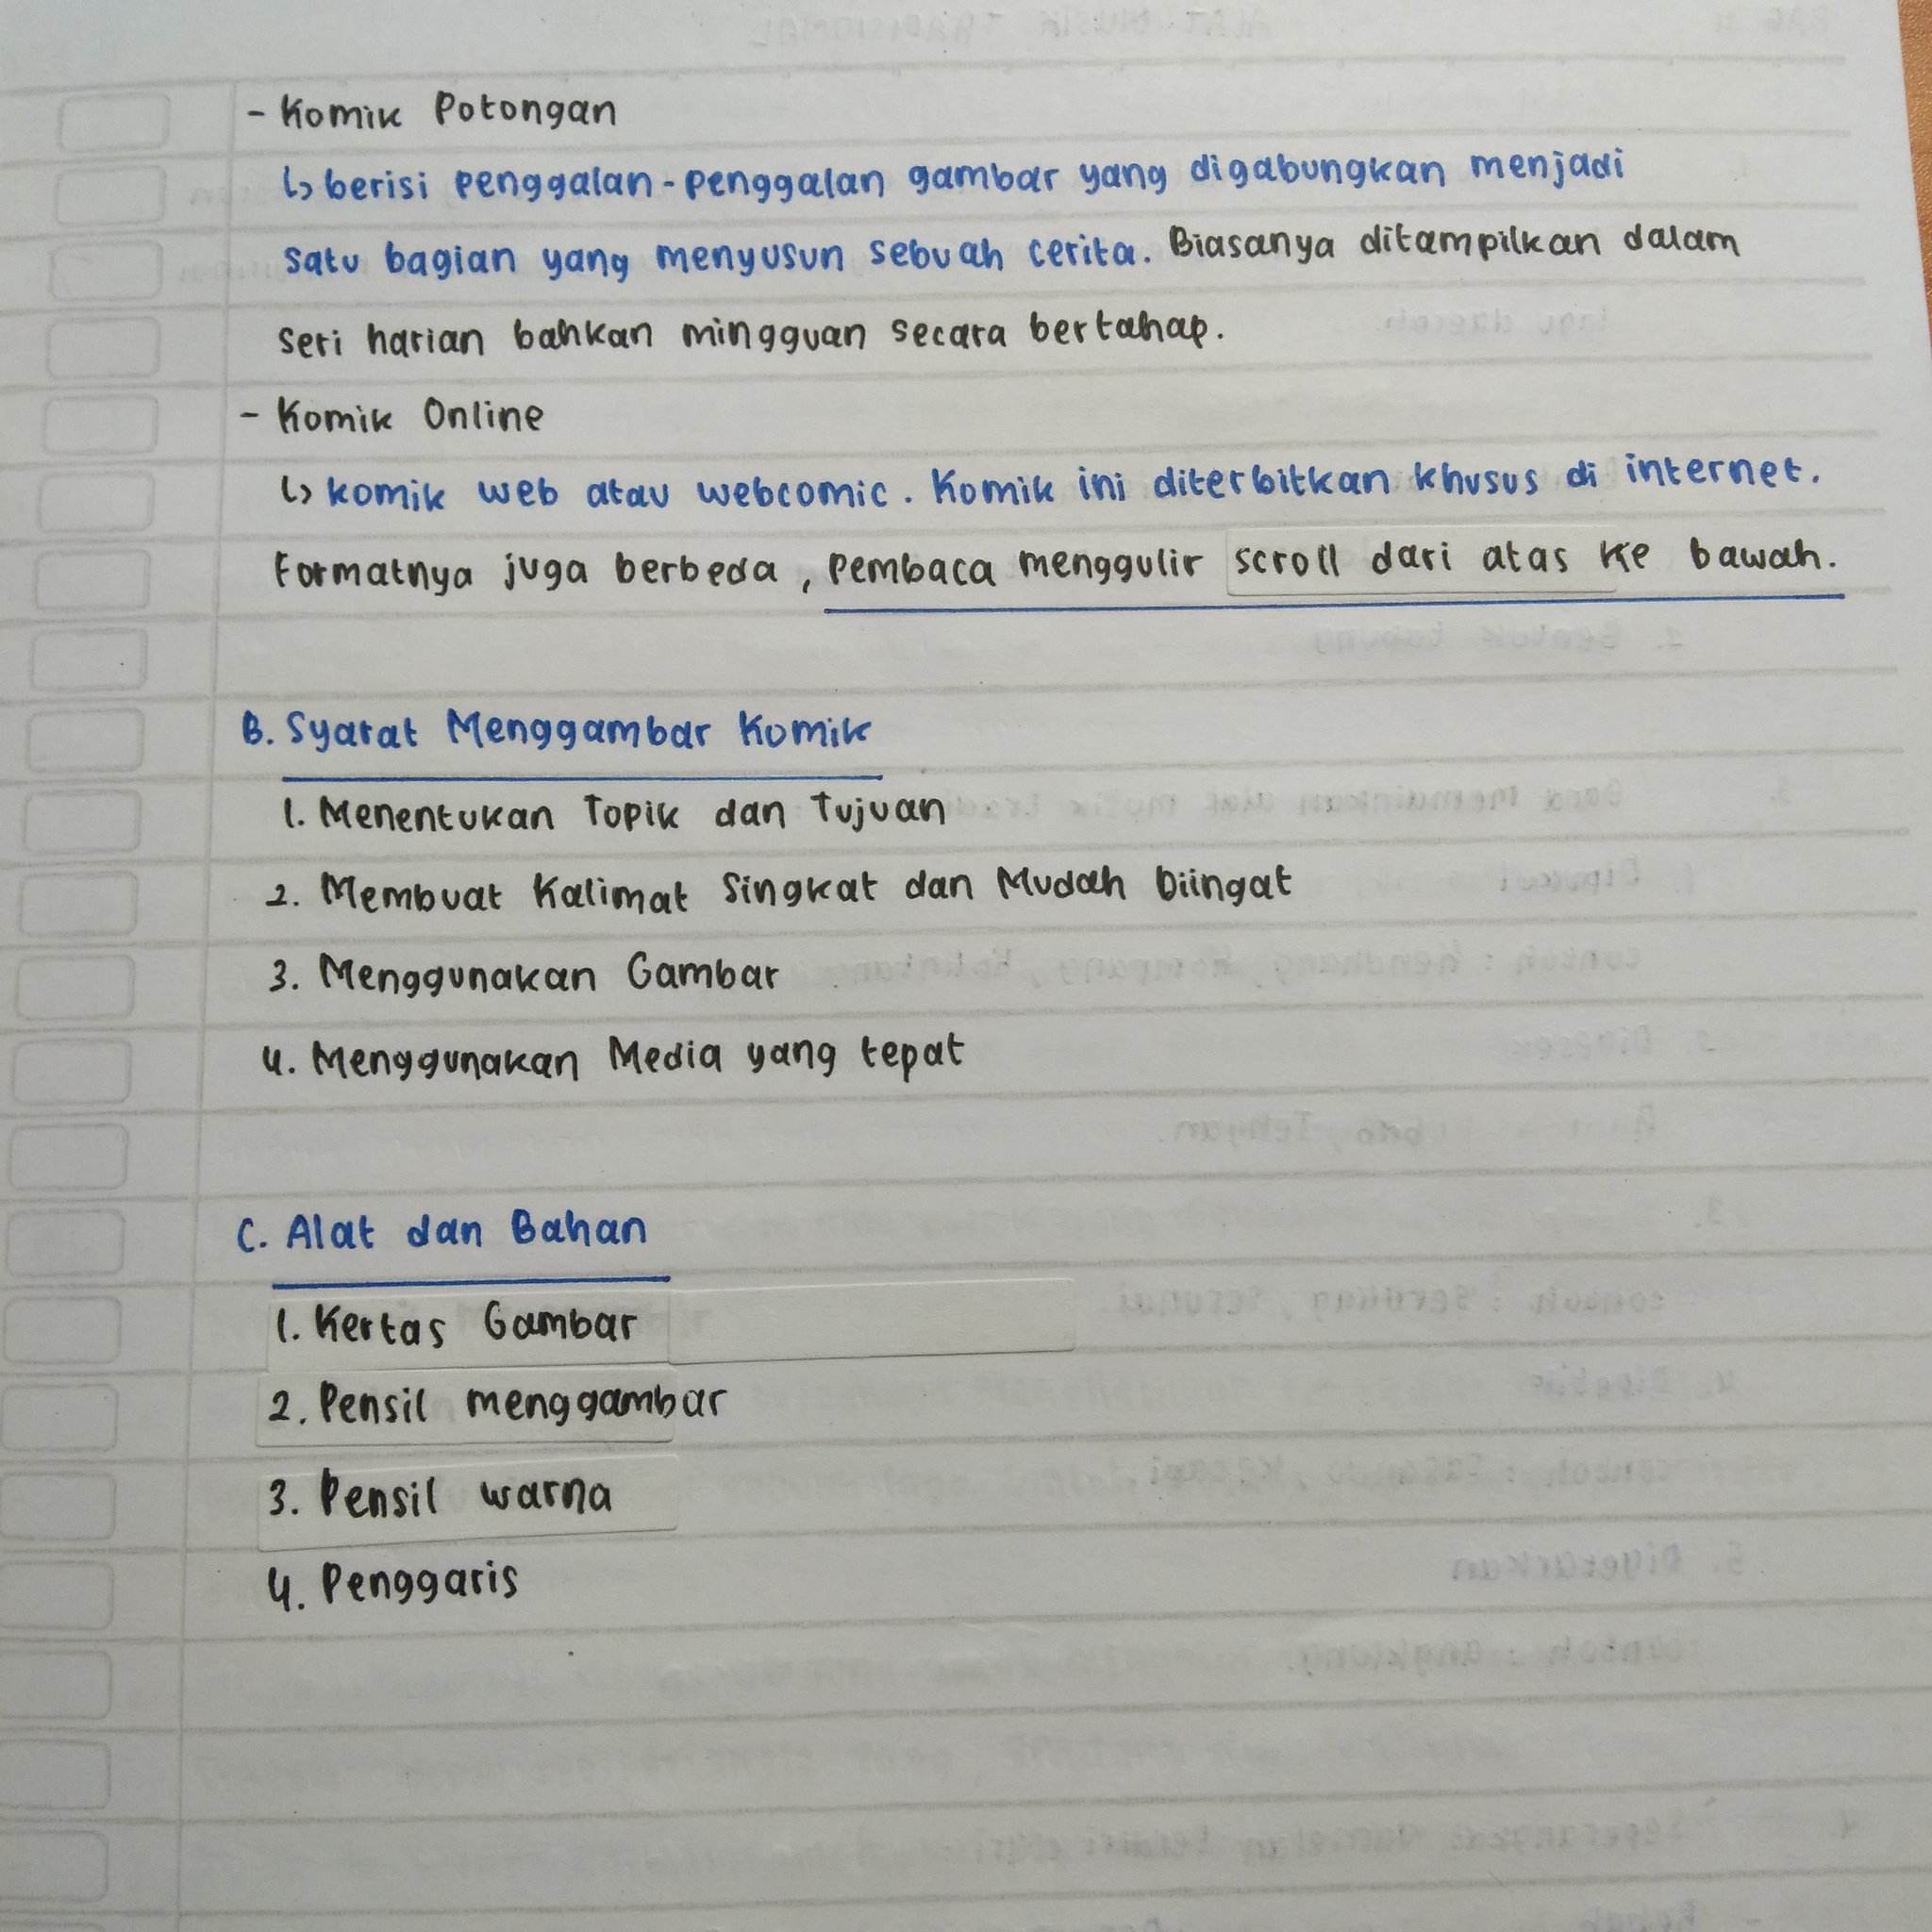 - Komik Potongan
↳ berisi penggalan-penggalan gambar yang digabungkan menjadi
satu bagian yang menyusun sebuah cerita. Biasanya ditampilkan dalam
seri harian bahkan mingguan secara bertahap.
- Komik Online
↳ komik web atau webcomic. Komik ini diterbitkan khusus di internet.
Formatnya juga berbeda, pembaca menggulir scroll dari atas ke bawah.
B. Syarat Menggambar Komik
1. Menentukan Topik dan Tujuan
2. Membuat Kalimat Singkat dan Mudah Diingat
3. Menggunakan Gambar
4. Menggunakan Media yang tepat
C. Alat dan Bahan
1. Kertas Gambar
2. Pensil menggambar
3. Pensil warna
4. Penggaris